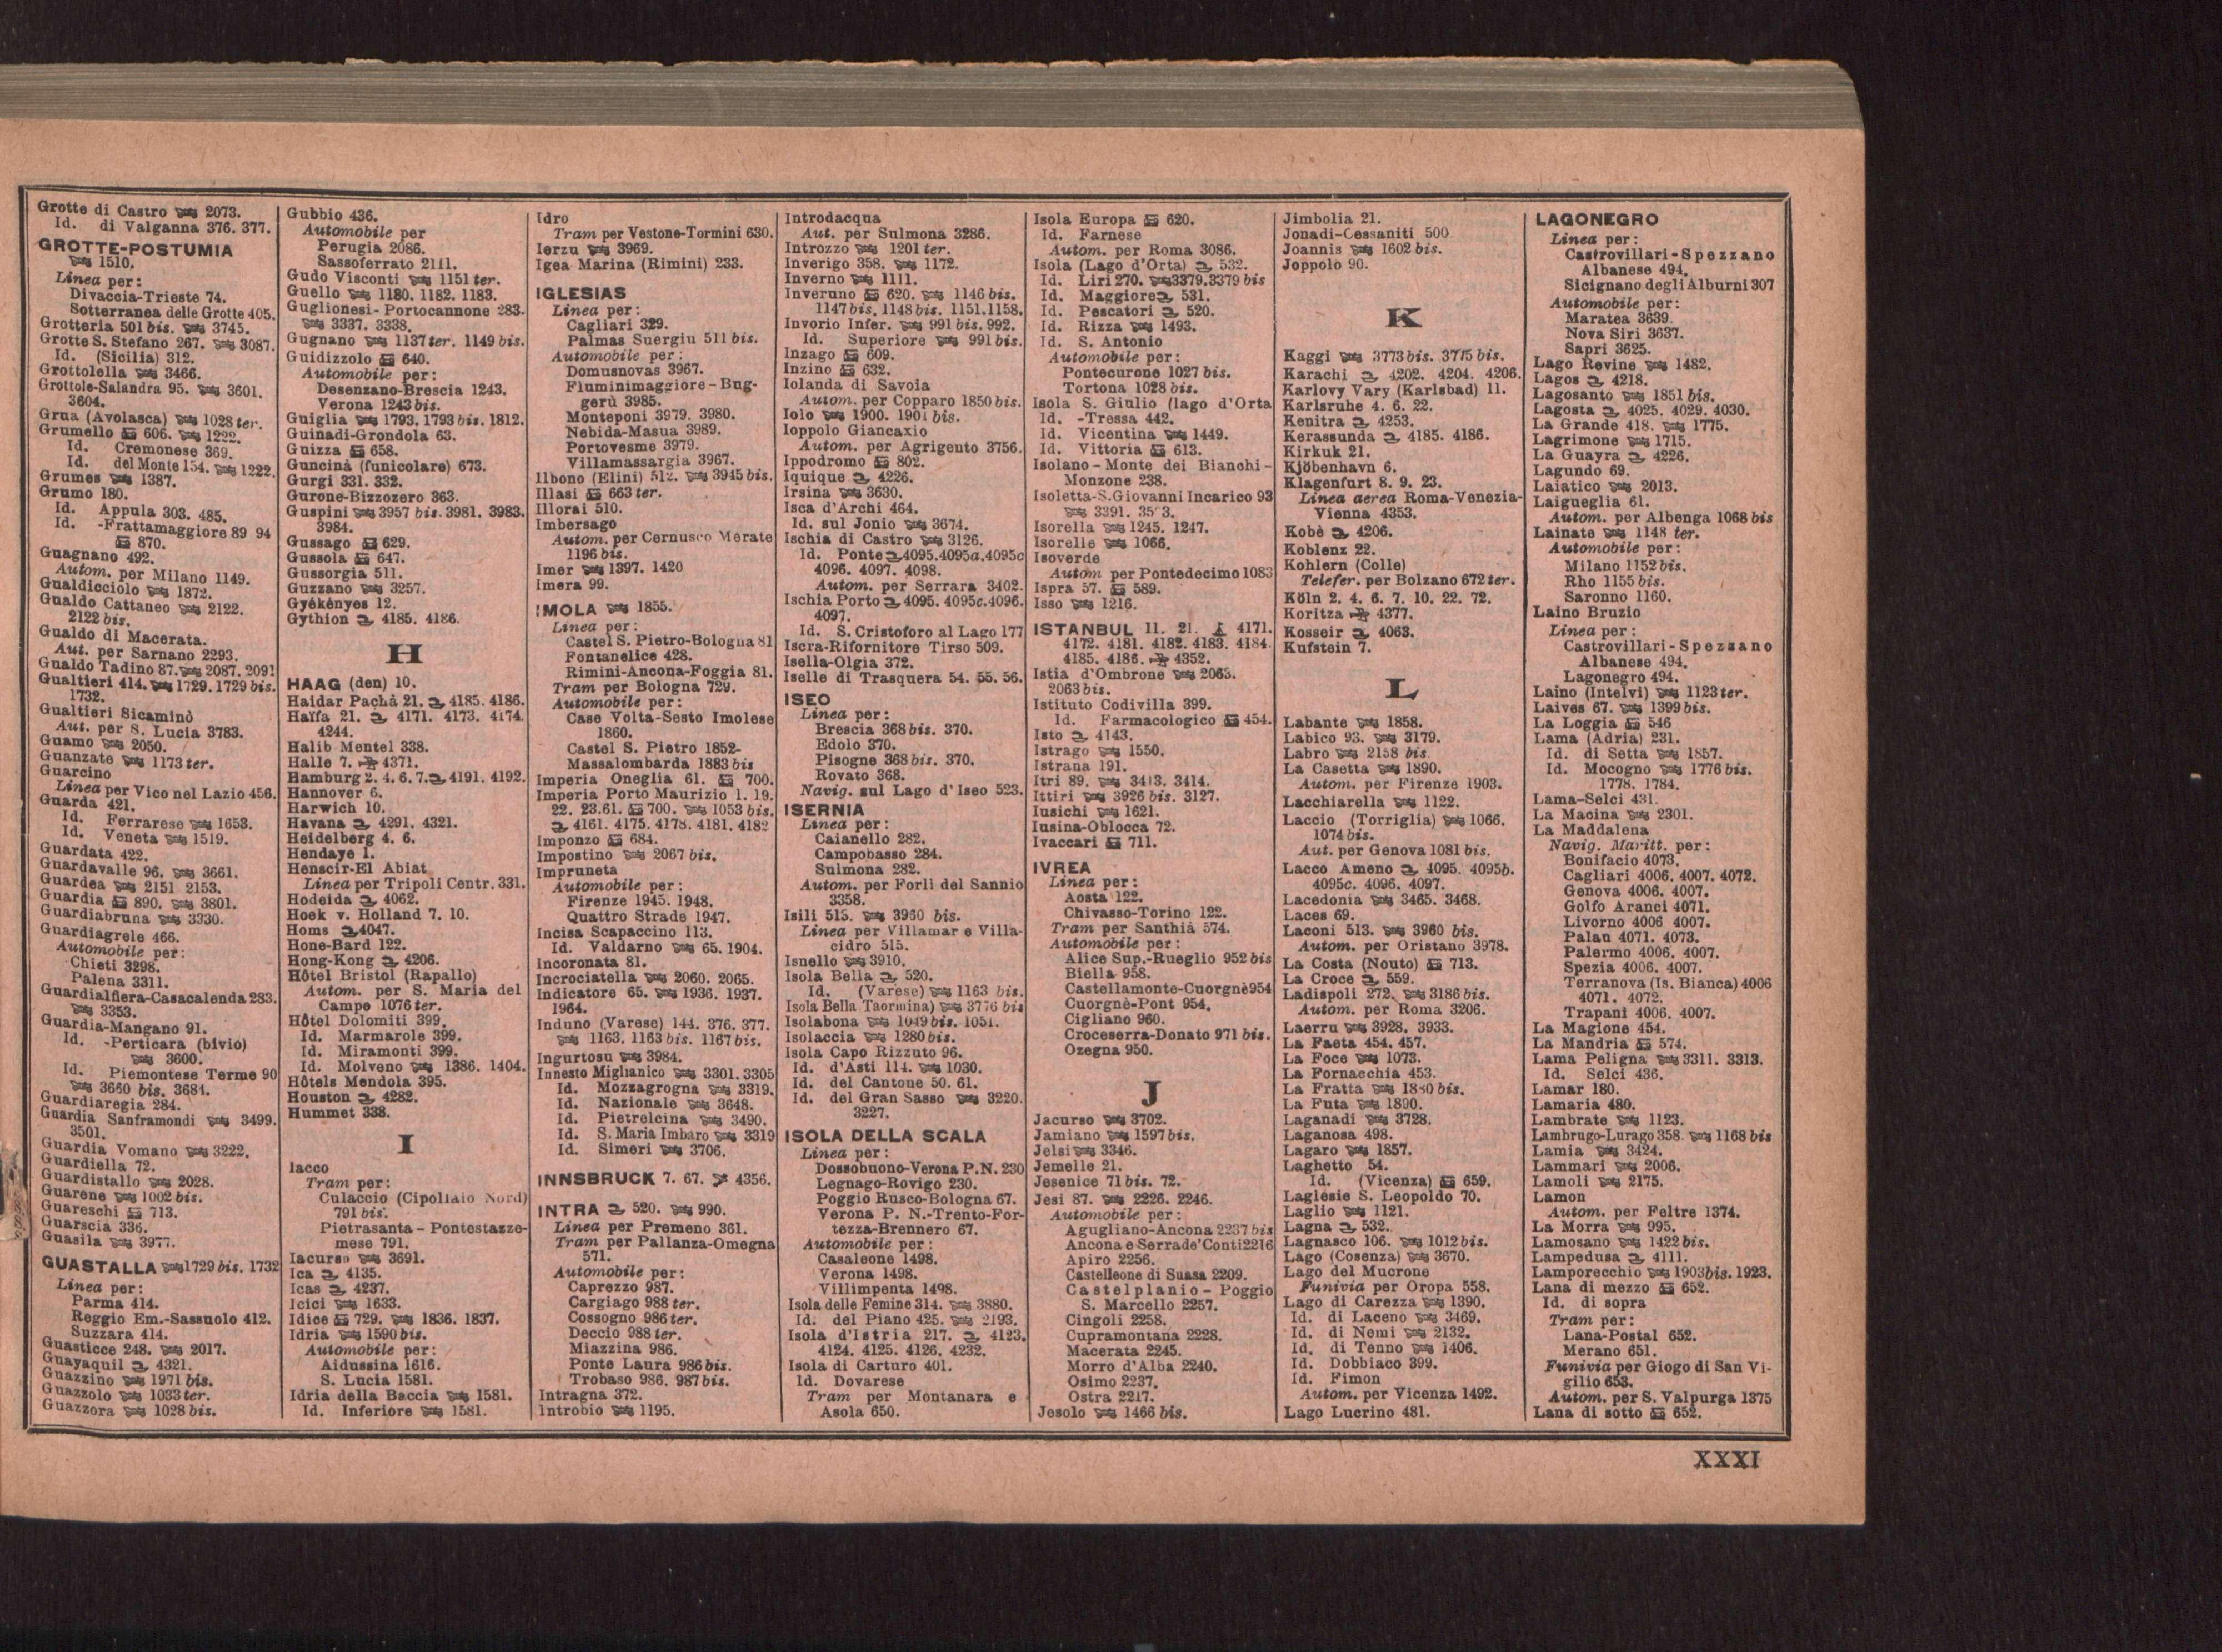 Grotte di Castro 2073.
Id. di Valganna 376. 377.
GROTTE-POSTUMIA
1510.
Linea per:
Divaccia-Trieste 74.
Sotterranea delle Grotte 405.
Grotteria 501 bis. 3745.
Grotte S. Stefano 267. 3087.
Id. (Sicilia) 312.
Grottolella 3466.
Grottole-Salandra 95. 3601.
3604.
Grua (Avolasca) 1028 ter.
Grumello 606. 1222.
Id. Cremonese 369.
Id. del Monte 154. 1222.
Grumes 1387.
Grumo 180.
Id. Appula 303. 485.
Id. -Frattamaggiore 89 94
870.
Guagnano 492.
Autom. per Milano 1149.
Gualdicciolo 1872.
Gualdo Cattaneo 2122.
2122 bis.
Gualdo di Macerata.
Aut. per Sarnano 2293.
Gualdo Tadino 87. 2087. 2091
Gualtieri 414. 1729. 1729 bis.
1732.
Gualtieri Sicaminò
Aut. per S. Lucia 3783.
Guamo 2050.
Guanzate 1173 ter.
Guarcino
Linea per Vico nel Lazio 456.
Guarda 421.
Id. Ferrarese 1653.
Id. Veneta 1519.
Guardata 422.
Guardavalle 96. 3661.
Guardea 2151 2153.
Guardia 890. 3801.
Guardiabruna 3330.
Guardiagrele 466.
Automobile per:
Chieti 3298.
Palena 3311.
Guardialfiera-Casacalenda 283.
3353.
Guardia-Mangano 91.
Id. -Perticara (bivio)
3600.
Id. Piemontese Terme 90
3660 bis. 3681.
Guardiaregia 284.
Guardia Sanframondi 3499.
3501.
Guardia Vomano 3222.
Guardiella 72.
Guardistallo 2028.
Guarene 1002 bis.
Guareschi 713.
Guarscia 336.
Guasila 3977.
GUASTALLA 1729 bis. 1732
Linea per:
Parma 414.
Reggio Em.-Sassuolo 412.
Suzzara 414.
Guasticce 248. 2017.
Guayaquil 4321.
Guazzino 1971 bis.
Guazzolo 1033 ter.
Guazzora 1028 bis.
Gubbio 436.
Automobile per
Perugia 2086.
Sassoferrato 2111.
Gudo Visconti 1151 ter.
Guello 1180. 1182. 1183.
Guglionesi-Portocannone 283.
3337. 3338.
Gugnano 1137 ter. 1149 bis.
Guidizzolo 640.
Automobile per:
Desenzano-Brescia 1243.
Verona 1243 bis.
Guiglia 1793. 1793 bis. 1812.
Guinadi-Grondola 63.
Guizza 658.
Guncinà (funicolare) 673.
Gurgi 331. 332.
Gurone-Bizzozero 363.
Guspini 3957 bis. 3981. 3983.
3984.
Gussago 629.
Gussola 647.
Gussorgia 511.
Guzzano 3257.
Gyékényes 12.
Gythion 4185. 4186.
H
HAAG (den) 10.
Haidar Pachà 21. 4185. 4186.
Haïfa 21. 4171. 4173. 4174.
4244.
Halib Mentel 338.
Halle 7. 4371.
Hamburg 2. 4. 6. 7. 4191. 4192.
Hannover 6.
Harwich 10.
Havana 4291. 4321.
Heidelberg 4. 6.
Hendaye 1.
Henscir-El Abiat
Linea per Tripoli Centr. 331.
Hodeida 4062.
Hoek v. Holland 7. 10.
Homs 4047.
Hone-Bard 122.
Hong-Kong 4206.
Hôtel Bristol (Rapallo)
Autom. per S. Maria del
Campo 1076 ter.
Hôtel Dolomiti 399.
Id. Marmarole 399.
Id. Miramonti 399.
Id. Molveno 1386. 1404.
Hôtels Mendola 395.
Houston 4282.
Hummet 338.
I
Iacco
Tram per:
Culaccio (Cipollaio Nord)
791 bis.
Pietrasanta-Pontestazze-
mese 791.
Iacurso 3691.
Ica 4135.
Icas 4237.
Icici 1633.
Idice 729. 1836. 1837.
Idria 1590 bis.
Automobile per:
Aidussina 1616.
S. Lucia 1581.
Idria della Baccia 1581.
Id. Inferiore 1581.
Idro
Tram per Vestone-Tormini 630.
Ierzu 3969.
Igea Marina (Rimini) 233.
IGLESIAS
Linea per:
Cagliari 329.
Palmas Suergiu 511 bis.
Automobile per:
Domusnovas 3967.
Fluminimaggiore-Bug-
gerù 3985.
Monteponi 3979. 3980.
Nebida-Masua 3989.
Portovesme 3979.
Villamassargia 3967.
Ilbono (Elini) 512. 3945 bis.
Illasi 663 ter.
Illorai 510.
Imbersago
Autom. per Cernusco Merate
1196 bis.
Imer 1397. 1420
Imera 99.
IMOLA 1855.
Linea per:
Castel S. Pietro-Bologna 81
Fontanelice 428.
Rimini-Ancona-Foggia 81.
Tram per Bologna 729.
Automobile per:
Case Volta-Sesto Imolese
1860.
Castel S. Pietro 1852-
Massalombarda 1883 bis
Imperia Oneglia 61. 700.
Imperia Porto Maurizio 1. 19.
22. 23.61. 700. 1053 bis.
4161. 4175. 4178. 4181. 4182
Imponzo 684.
Impostino 2067 bis.
Impruneta
Automobile per:
Firenze 1945. 1948.
Quattro Strade 1947.
Incisa Scapaccino 113.
Id. Valdarno 65. 1904.
Incoronata 81.
Incrociatella 2060. 2065.
Indicatore 65. 1936. 1937.
1964.
Induno (Varese) 144. 376. 377.
1163. 1163 bis. 1167 bis.
Ingurtosu 3984.
Innesto Miglianico 3301. 3305
Id. Mozzagrogna 3319.
Id. Nazionale 3648.
Id. Pietrelcina 3490.
Id. S. Maria Imbaro 3319
Id. Simeri 3706.
INNSBRUCK 7. 67. 4356.
INTRA 520. 990.
Linea per Premeno 361.
Tram per Pallanza-Omegna
571.
Automobile per:
Caprezzo 987.
Cargiago 988 ter.
Cossogno 986 ter.
Deccio 988 ter.
Miazzina 986.
Ponte Laura 986 bis.
Trobaso 986. 987 bis.
Intragna 372.
Introbio 1195.
Introdacqua
Aut. per Sulmona 3286.
Introzzo 1201 ter.
Inverigo 358. 1172.
Inverno 1111.
Inveruno 620. 1146 bis.
1147 bis. 1148 bis. 1151.1158.
Invorio Infer. 991 bis. 992.
Id. Superiore 991 bis.
Inzago 609.
Inzino 632.
Iolanda di Savoia
Autom. per Copparo 1850 bis.
Iolo 1900. 1901 bis.
Ioppolo Giancaxio
Autom. per Agrigento 3756.
Ippodromo 802.
Iquique 4226.
Irsina 3630.
Isca d'Archi 464.
Id. sul Jonio 3674.
Ischia di Castro 3126.
Id. Ponte 4095.4095a.4095c
4096. 4097. 4098.
Autom. per Serrara 3402.
Ischia Porto 4095. 4095c.4096.
4097.
Id. S. Cristoforo al Lago 177
Iscra-Rifornitore Tirso 509.
Isella-Olgia 372.
Iselle di Trasquera 54. 55. 56.
ISEO
Linea per:
Brescia 368 bis. 370.
Edolo 370.
Pisogne 368 bis. 370.
Rovato 368.
Navig. sul Lago d'Iseo 523.
ISERNIA
Linea per:
Caianello 282.
Campobasso 284.
Sulmona 282.
Autom. per Forlì del Sannio
3358.
Isili 513. 3960 bis.
Linea per Villamar e Villa-
cidro 515.
Isnello 3910.
Isola Bella 520.
Id. (Varese) 1163 bis.
Isola Bella Taormina) 3776 bis
Isolabona 1049 bis. 1051.
Isolaccia 1280 bis.
Isola Capo Rizzuto 96.
Id. d'Asti 114. 1030.
Id. del Cantone 50. 61.
Id. del Gran Sasso 3220.
3227.
ISOLA DELLA SCALA
Linea per:
Dossobuono-Verona P.N. 230
Legnago-Rovigo 230.
Poggio Rusco-Bologna 67.
Verona P. N.-Trento-For-
tezza-Brennero 67.
Automobile per:
Casaleone 1498.
Verona 1498.
Villimpenta 1498.
Isola delle Femine 314. 3880.
Id. del Piano 425. 2193.
Isola d'Istria 217. 4123.
4124. 4125. 4126. 4232.
Isola di Carturo 401.
Id. Dovarese
Tram per Montanara e
Asola 650.
Isola Europa 620.
Id. Farnese
Autom. per Roma 3086.
Isola (Lago d'Orta) 532.
Id. Liri 270. 3379.3379 bis
Id. Maggiore 531.
Id. Pescatori 520.
Id. Rizza 1493.
Id. S. Antonio
Automobile per:
Pontecurone 1027 bis.
Tortona 1028 bis.
Isola S. Giulio (lago d'Orta
Id. -Tressa 442.
Id. Vicentina 1449.
Id. Vittoria 613.
Isolano-Monte dei Bianchi-
Monzone 238.
Isoletta-S.Giovanni Incarico 93
3391.
Isorella 1245. 1247.
Isorelle 1066.
Isoverde
Autom per Pontedecimo 1083
Ispra 57. 589.
Isso 1216.
ISTANBUL 11. 21. 4171.
4172. 4181. 4182. 4183. 4184.
4185. 4186. 4352.
Istia d'Ombrone 2063.
2063 bis.
Istituto Codivilla 399.
Id. Farmacologico 454.
Isto 4143.
Istrago 1550.
Istrana 191.
Itri 89. 3413. 3414.
Ittiri 3926 bis. 3127.
Iusichi 1621.
Iusina-Oblocca 72.
Ivaccari 711.
IVREA
Linea per:
Aosta 122.
Chivasso-Torino 122.
Tram per Santhià 574.
Automobile per:
Alice Sup.-Rueglio 952 bis
Biella 958.
Castellamonte-Cuorgnè 954
Cuorgnè-Pont 954.
Cigliano 960.
Croceserra-Donato 971 bis.
Ozegna 950.
J
Jacurso 3702.
Jamiano 1597 bis.
Jelsi 3346.
Jemelle 21.
Jesenice 71 bis. 72.
Jesi 87. 2226. 2246.
Automobile per:
Agugliano-Ancona 2237 bis
Ancona e Serrade'Conti 2216
Apiro 2256.
Castelleone di Suasa 2209.
Castelplanio-Poggio
S. Marcello 2257.
Cingoli 2258.
Cupramontana 2228.
Macerata 2245.
Morro d'Alba 2240.
Osimo 2237.
Ostra 2217.
Jesolo 1466 bis.
Jimbolia 21.
Jonadi-Cessaniti 500
Joannis 1602 bis.
Joppolo 90.
K
Kaggi 3773 bis. 3775 bis.
Karachi 4202. 4204. 4206.
Karlovy Vary (Karlsbad) 11.
Karlsruhe 4. 6. 22.
Kenitra 4253.
Kerassunda 4185. 4186.
Kirkuk 21.
Kjöbenhavn 6.
Klagenfurt 8. 9. 23.
Linea aerea Roma-Venezia-
Vienna 4353.
Kobè 4206.
Koblenz 22.
Kohlern (Colle)
Telefer. per Bolzano 672 ter.
Köln 2. 4. 6. 7. 10. 22. 72.
Koritza 4377.
Kosseir 4063.
Kufstein 7.
L
Labante 1858.
Labico 93. 3179.
Labro 2158 bis
La Casetta 1890.
Autom. per Firenze 1903.
Lacchiarella 1122.
Laccio (Torriglia) 1066.
1074 bis.
Aut. per Genova 1081 bis.
Lacco Ameno 4095. 4095b.
4095c. 4096. 4097.
Lacedonia 3465. 3468.
Laces 69.
Laconi 513. 3960 bis.
Autom. per Oristano 3978.
La Costa (Nouto) 713.
La Croce 559.
Ladispoli 272. 3186 bis.
Autom. per Roma 3206.
Laerru 3928. 3933.
La Faeta 454. 457.
La Foce 1073.
La Fornacchia 453.
La Fratta 1880 bis.
La Futa 1890.
Laganadi 3728.
Laganosa 498.
Lagaro 1857.
Laghetto 54.
Id. (Vicenza) 659.
Laglesie S. Leopoldo 70.
Laglio 1121.
Lagna 532.
Lagnasco 106. 1012 bis.
Lago (Cosenza) 3670.
Lago del Mucrone
Funivia per Oropa 558.
Lago di Carezza 1390.
Id. di Laceno 3469.
Id. di Nemi 2132.
Id. di Tenno 1406.
Id. Dobbiaco 399.
Id. Fimon
Autom. per Vicenza 1492.
Lago Lucrino 481.
LAGONEGRO
Linea per:
Castrovillari-Spezzano
Albanese 494.
Sicignano degli Alburni 307
Automobile per:
Maratea 3639.
Nova Siri 3637.
Sapri 3625.
Lago Revine 1482.
Lagos 4218.
Lagosanto 1851 bis.
Lagosta 4025. 4029. 4030.
La Grande 418. 1775.
Lagrimone 1715.
La Guayra 4226.
Lagundo 69.
Laiatico 2013.
Laigueglia 61.
Autom. per Albenga 1068 bis
Lainate 1148 ter.
Automobile per:
Milano 1152 bis.
Rho 1155 bis.
Saronno 1160.
Laino Bruzio
Linea per:
Castrovillari-Spezzano
Albanese 494.
Lagonegro 494.
Laino (Intelvi) 1123 ter.
Laives 67. 1399 bis.
La Loggia 546
Lama (Adria) 231.
Id. di Setta 1857.
Id. Mocogno 1776 bis.
1778. 1784.
Lama-Selci 431.
La Macina 2301.
La Maddalena
Navig. Maritt. per:
Bonifacio 4073.
Cagliari 4006. 4007. 4072.
Genova 4006. 4007.
Golfo Aranci 4071.
Livorno 4006 4007.
Palau 4071. 4073.
Palermo 4006. 4007.
Spezia 4006. 4007.
Terranova (Is. Bianca) 4006
4071. 4072.
Trapani 4006. 4007.
La Magione 454.
La Mandria 574.
Lama Peligna 3311. 3313.
Id. Selci 436.
Lamar 180.
Lamaria 480.
Lambrate 1123.
Lambrugo-Lurago 358. 1168 bis
Lamia 3424.
Lammari 2006.
Lamoli 2175.
Lamon
Autom. per Feltre 1374.
La Morra 995.
Lamosano 1422 bis.
Lampedusa 4111.
Lamporecchio 1903 bis. 1923.
Lana di mezzo 652.
Id. di sopra
Tram per:
Lana-Postal 652.
Merano 651.
Funivia per Giogo di San Vi-
gilio 653.
Autom. per S. Valpurga 1375
Lana di sotto 652.
XXXI